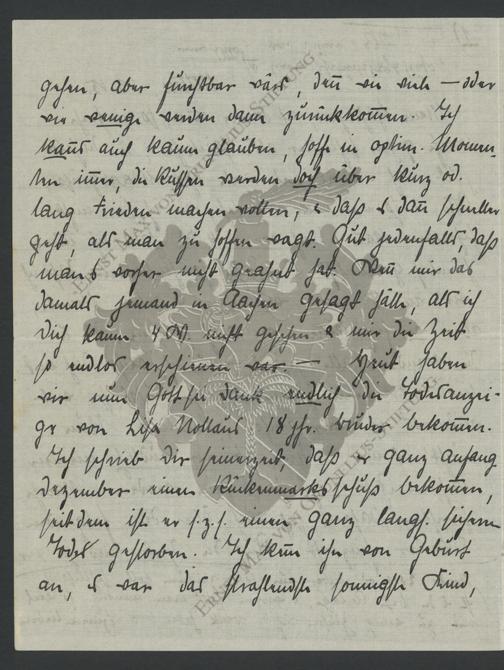 gehen, aber furchtbar wärs, denn wie viele – oder
wie wenige werden dann zurückkommen. Ich
kanns auch kaum glauben, hoffe in optim. Momen-
ten immer, die Russen werden doch über kurz od.
lang Frieden machen wollen, & daß es dann schneller
geht, als man zu hoffen wagt. Gut jedenfalls, daß
man's vorher nicht geahnt hat. Wenn mir das
damals jemand in Aachen gesagt hätte, als ich
Dich kaum 4 W. nicht gesehen & mir die Zeit
so endlos erschienen war. – Heut haben
wir nun Gott sei dank endlich die Todesanzei-
ge von Lisa Nollaus 18 jhr. Bruder bekommen.
Ich schrieb Dir seinerzeit, daß er ganz anfang
Dezember einen Rückenmarksschuß bekommen,
seitdem ist er s.z.s. einen ganz langs. sichern
Todes gestorben. Ich kenn ihn von Geburt
an, es war das strahlendste sonnigste Kind,
ERNST MAX VON GRUNELIUS-STIFTUNG
ERNST MAX VON GRUNELIUS-STIFTUNG